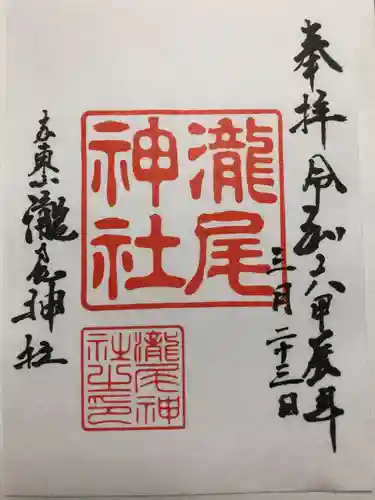 奉拝 令和六甲辰年
三月二十三日
瀧尾
神社
瀧尾神
社之印
京東山瀧尾神社